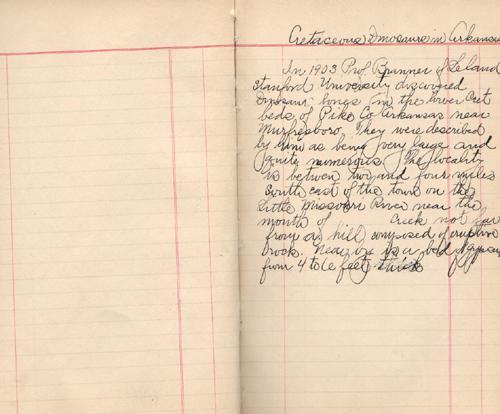 Cretaceous Dinosaurs in Arkansas
In 1903 Prof Branner of Leland
Stanford University discovered
Dinosaur bones in the lower Cret
beds of Pike Co Arkansas near
Murfresboro. They were described
by him as being very large and
quite numerous. The locality
is between two and four miles
South east of the town on the
Little Missouri River near the
mouth of Creek not far
from a hill composed of eruptive
rock. Near by is a bed of gypsum
from 4 to 6 feet thick